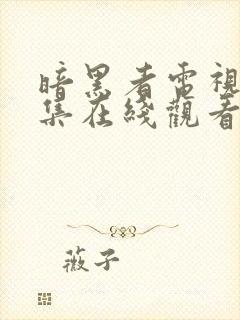 暗黑者電視
集在綫觀看
薇子